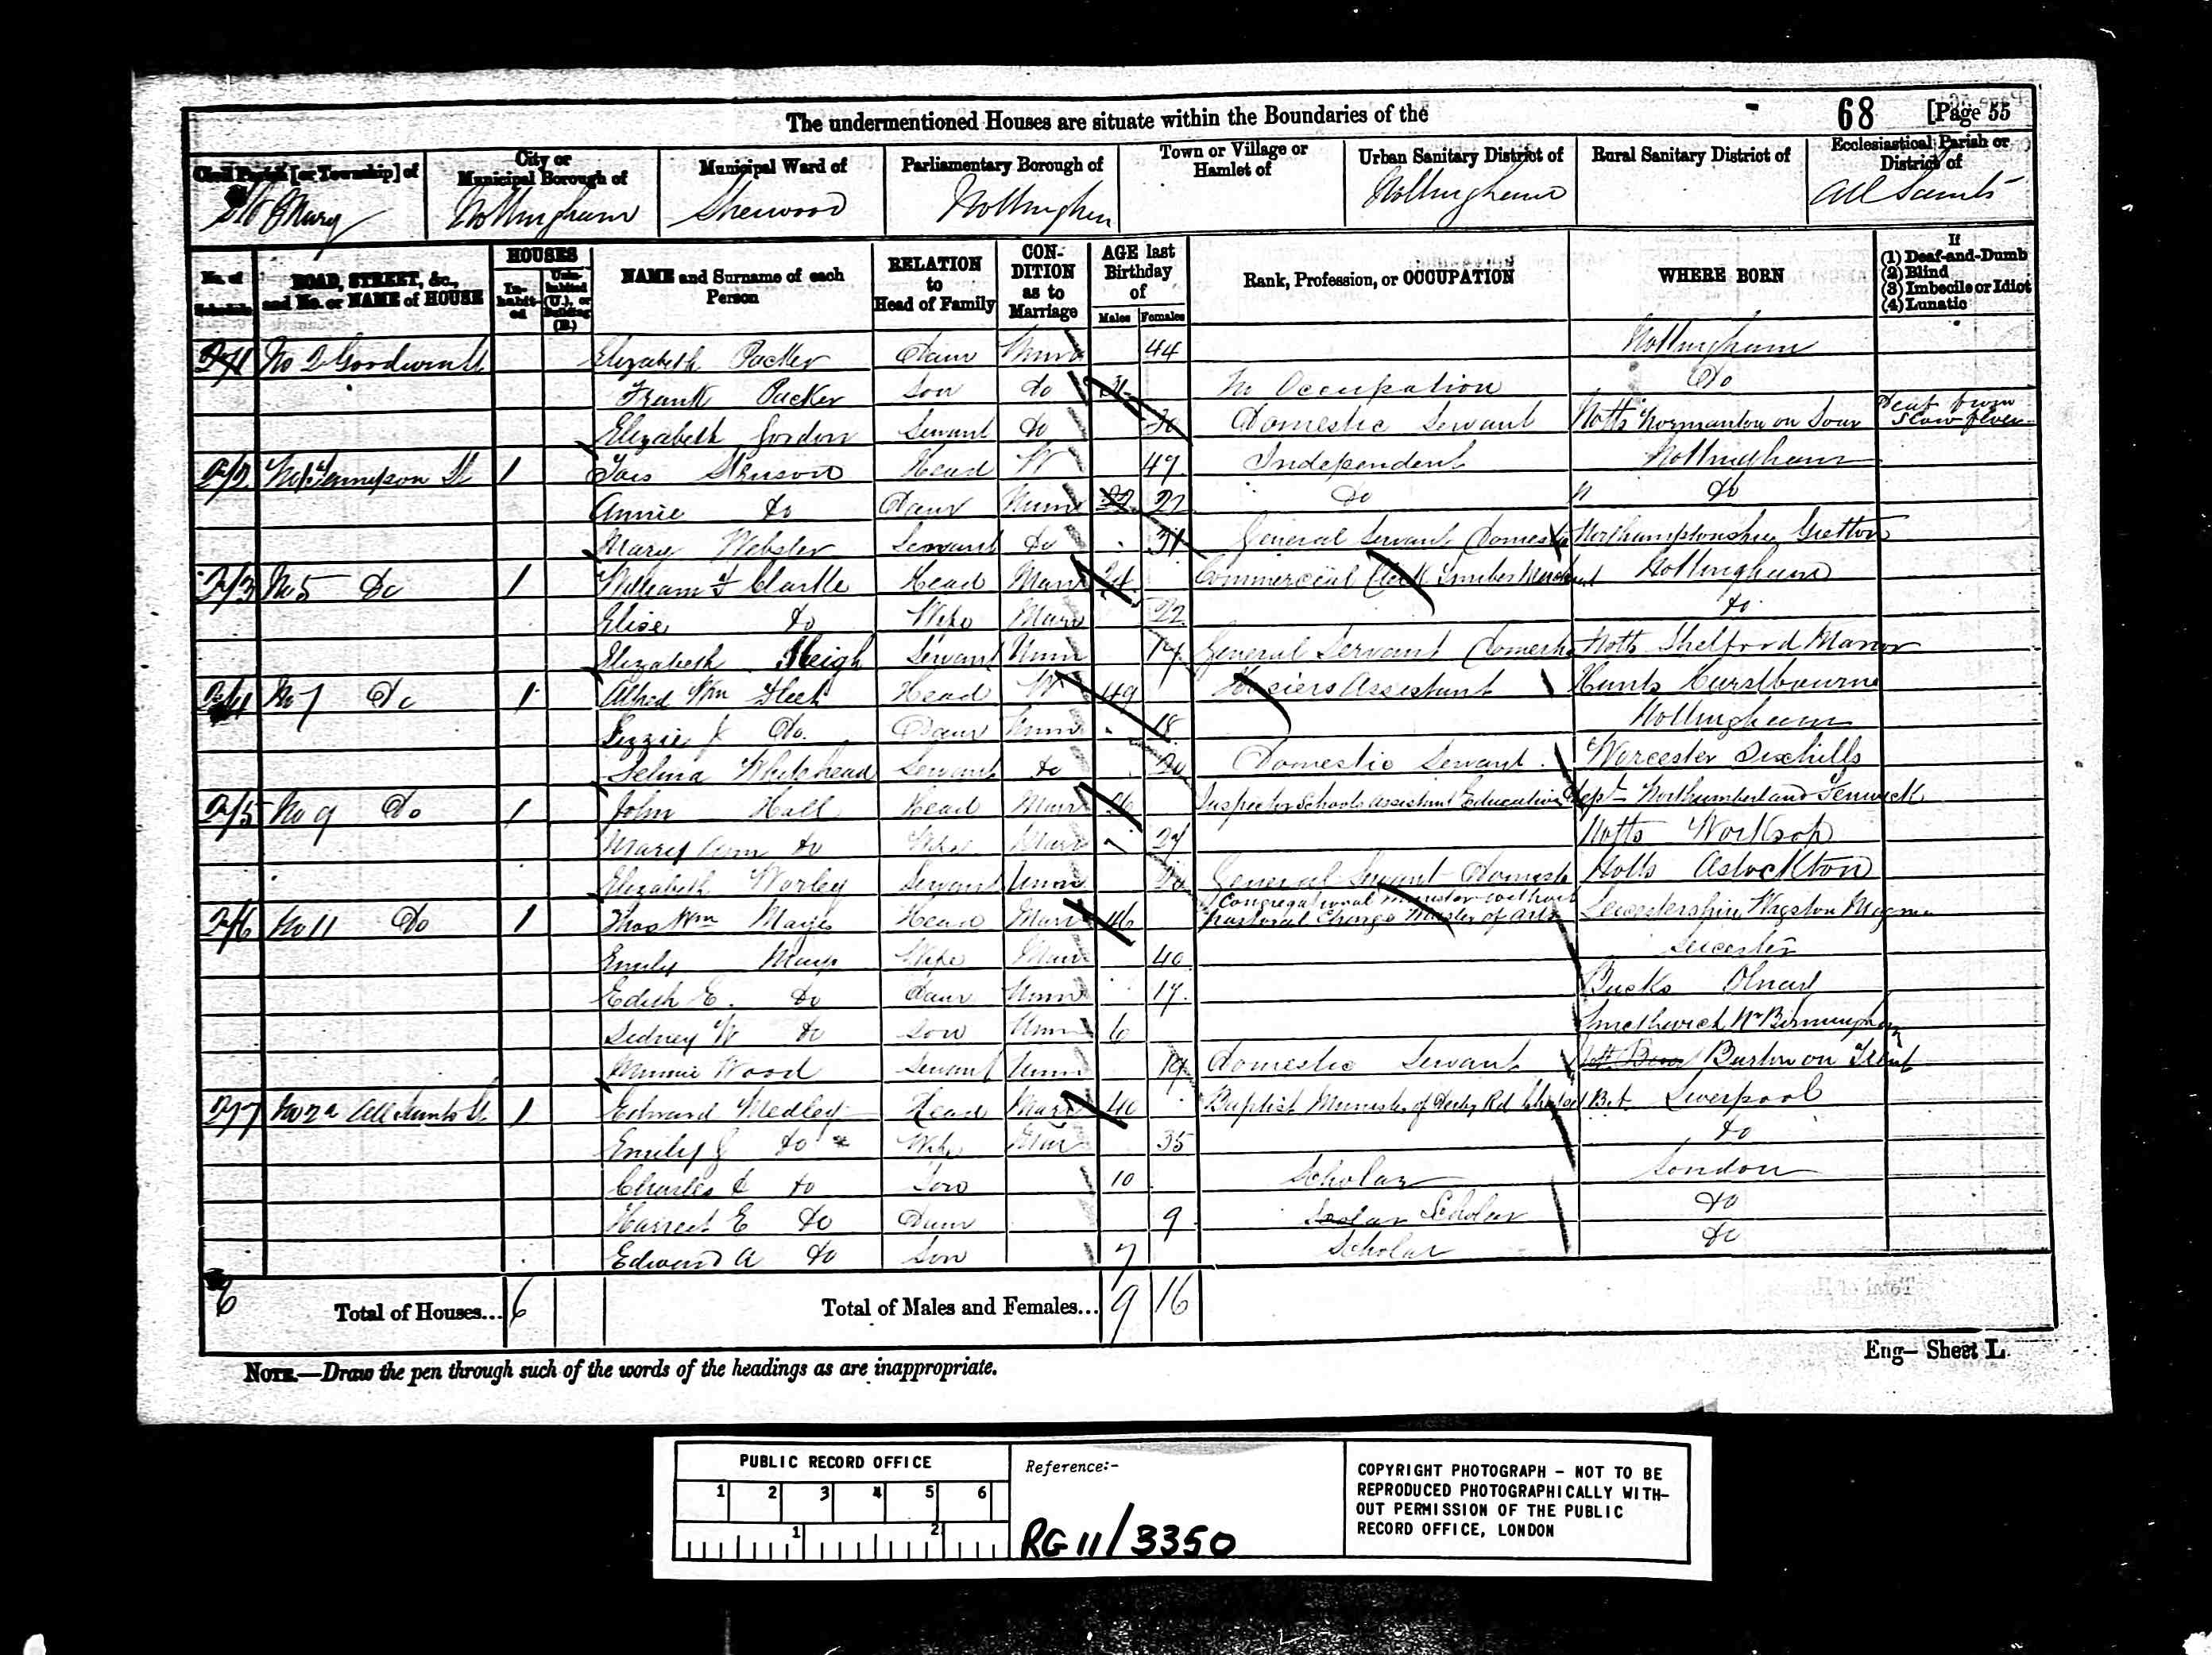 The undermentioned Houses are situate within the Boundaries of the
68 [Page 55
Civil Parish [or Township] of
City or Municipal Borough of
Municipal Ward of
Parliamentary Borough of
Town or Village or Hamlet of
Urban Sanitary District of
Rural Sanitary District of
Ecclesiastical Parish or District of
St Mary Nottingham Sherwood Nottingham Nottingham All Saints
No. of Schedule
ROAD, STREET, &c., and No. or NAME of HOUSE
HOUSES
In-habit-ed
Unin-habited (U.), or Building (B.)
NAME and Surname of each Person
RELATION to Head of Family
CON-DITION as to Marriage
AGE last Birthday of
Males Females
Rank, Profession, or OCCUPATION
WHERE BORN
If
(1) Deaf-and-Dumb
(2) Blind
(3) Imbecile or Idiot
(4) Lunatic
271 No 2 Goodwin St Elizabeth Packer Daur Unm 44 Nottingham
Frank Packer Son do No Occupation Do
Elizabeth Gordon Servant do 30 Domestic Servant Notts Normanton on Soar Deaf from
272 Tennyson St 1 Head W 47 Independent Nottingham
Annie do Daur Unm 22 22 Do do
Mary Webster Servant do 31 General Servant Domestic Northamptonshire Gretton
273 No 5 Do 1 William F Clarke Head Marr 24 Commercial Clerk Timber Merchant Nottingham
Elise do Wife Marr 22 do
Elizabeth Sleigh Servant Unm 17 General Servant Domestic Notts Shelford Manor
274 No 7 Do 1 Alfred Wm Head W 49 Hosiers Assistant Hants Hurstbourne
Lizzie Do Daur Unm 18 Nottingham
Selina Whitehead Servant do 20 Domestic Servant Worcester
275 No 9 Do 1 John Hall Head Marr 26 Inspector Schools Assistant Education Dept Northumberland Fenwick
Mary Ann do Wife Marr 27 Notts Worksop
Elizabeth Worley Servant Unm 20 General Servant Domestic Notts Aslockton
276 No 11 Do 1 Thos Wm Mays Head Marr 46 Congregational minister without pastoral Charge Master of Arts Leicestershire Wigston Magna
Emily Mays Wife Marr 40 Leicester
Edith E. do Daur Unm 17 Bucks Olney
Sidney W do Son Unm 6 Smethwick Nr Birmingham
Minnie Wood Servant Unm 19 Domestic Servant Burton on Trent
277 No 2a All Saints St 1 Edward Medley Head Marr 40 Baptist Minister of Derby Rd Chapel Bot Liverpool
Emily J do Wife Mar 35 do
Charles do Son 10 Scholar London
Harriet E do Daur 9 Scholar do
Edward A do Son 7 Scholar do
6 Total of Houses... 6 Total of Males and Females... 9 16
Eng— Sheet L.
NOTE.—Draw the pen through such of the words of the headings as are inappropriate.
PUBLIC RECORD OFFICE
1 2 3 4 5 6
1 2
Reference:-
RG 11/3350
COPYRIGHT PHOTOGRAPH - NOT TO BE
REPRODUCED PHOTOGRAPHICALLY WITH-
OUT PERMISSION OF THE PUBLIC
RECORD OFFICE, LONDON